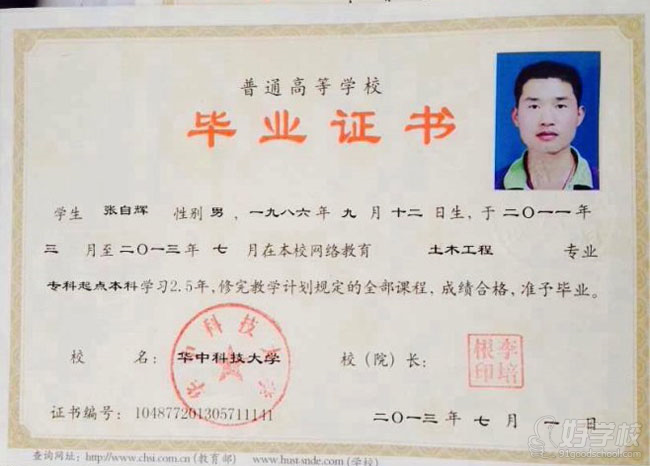 普通高等学校
毕业证书
学生 张自辉 性别 男，一九八六年 九 月 十二 日生，于 二〇一一年
三 月至 二〇一三年 七 月在本校网络教育 土木工程 专业
专科起点本科学习2.5年，修完教学计划规定的全部课程，成绩合格，准予毕业。
校 名： 华中科技大学 校（院）长： 李培根印
证书编号： 104877201305711141 二〇一三 年 七 月 一 日
查询网址：http://www.chsi.com.cn（教育部） www.hust-snde.com（学校）
好学校